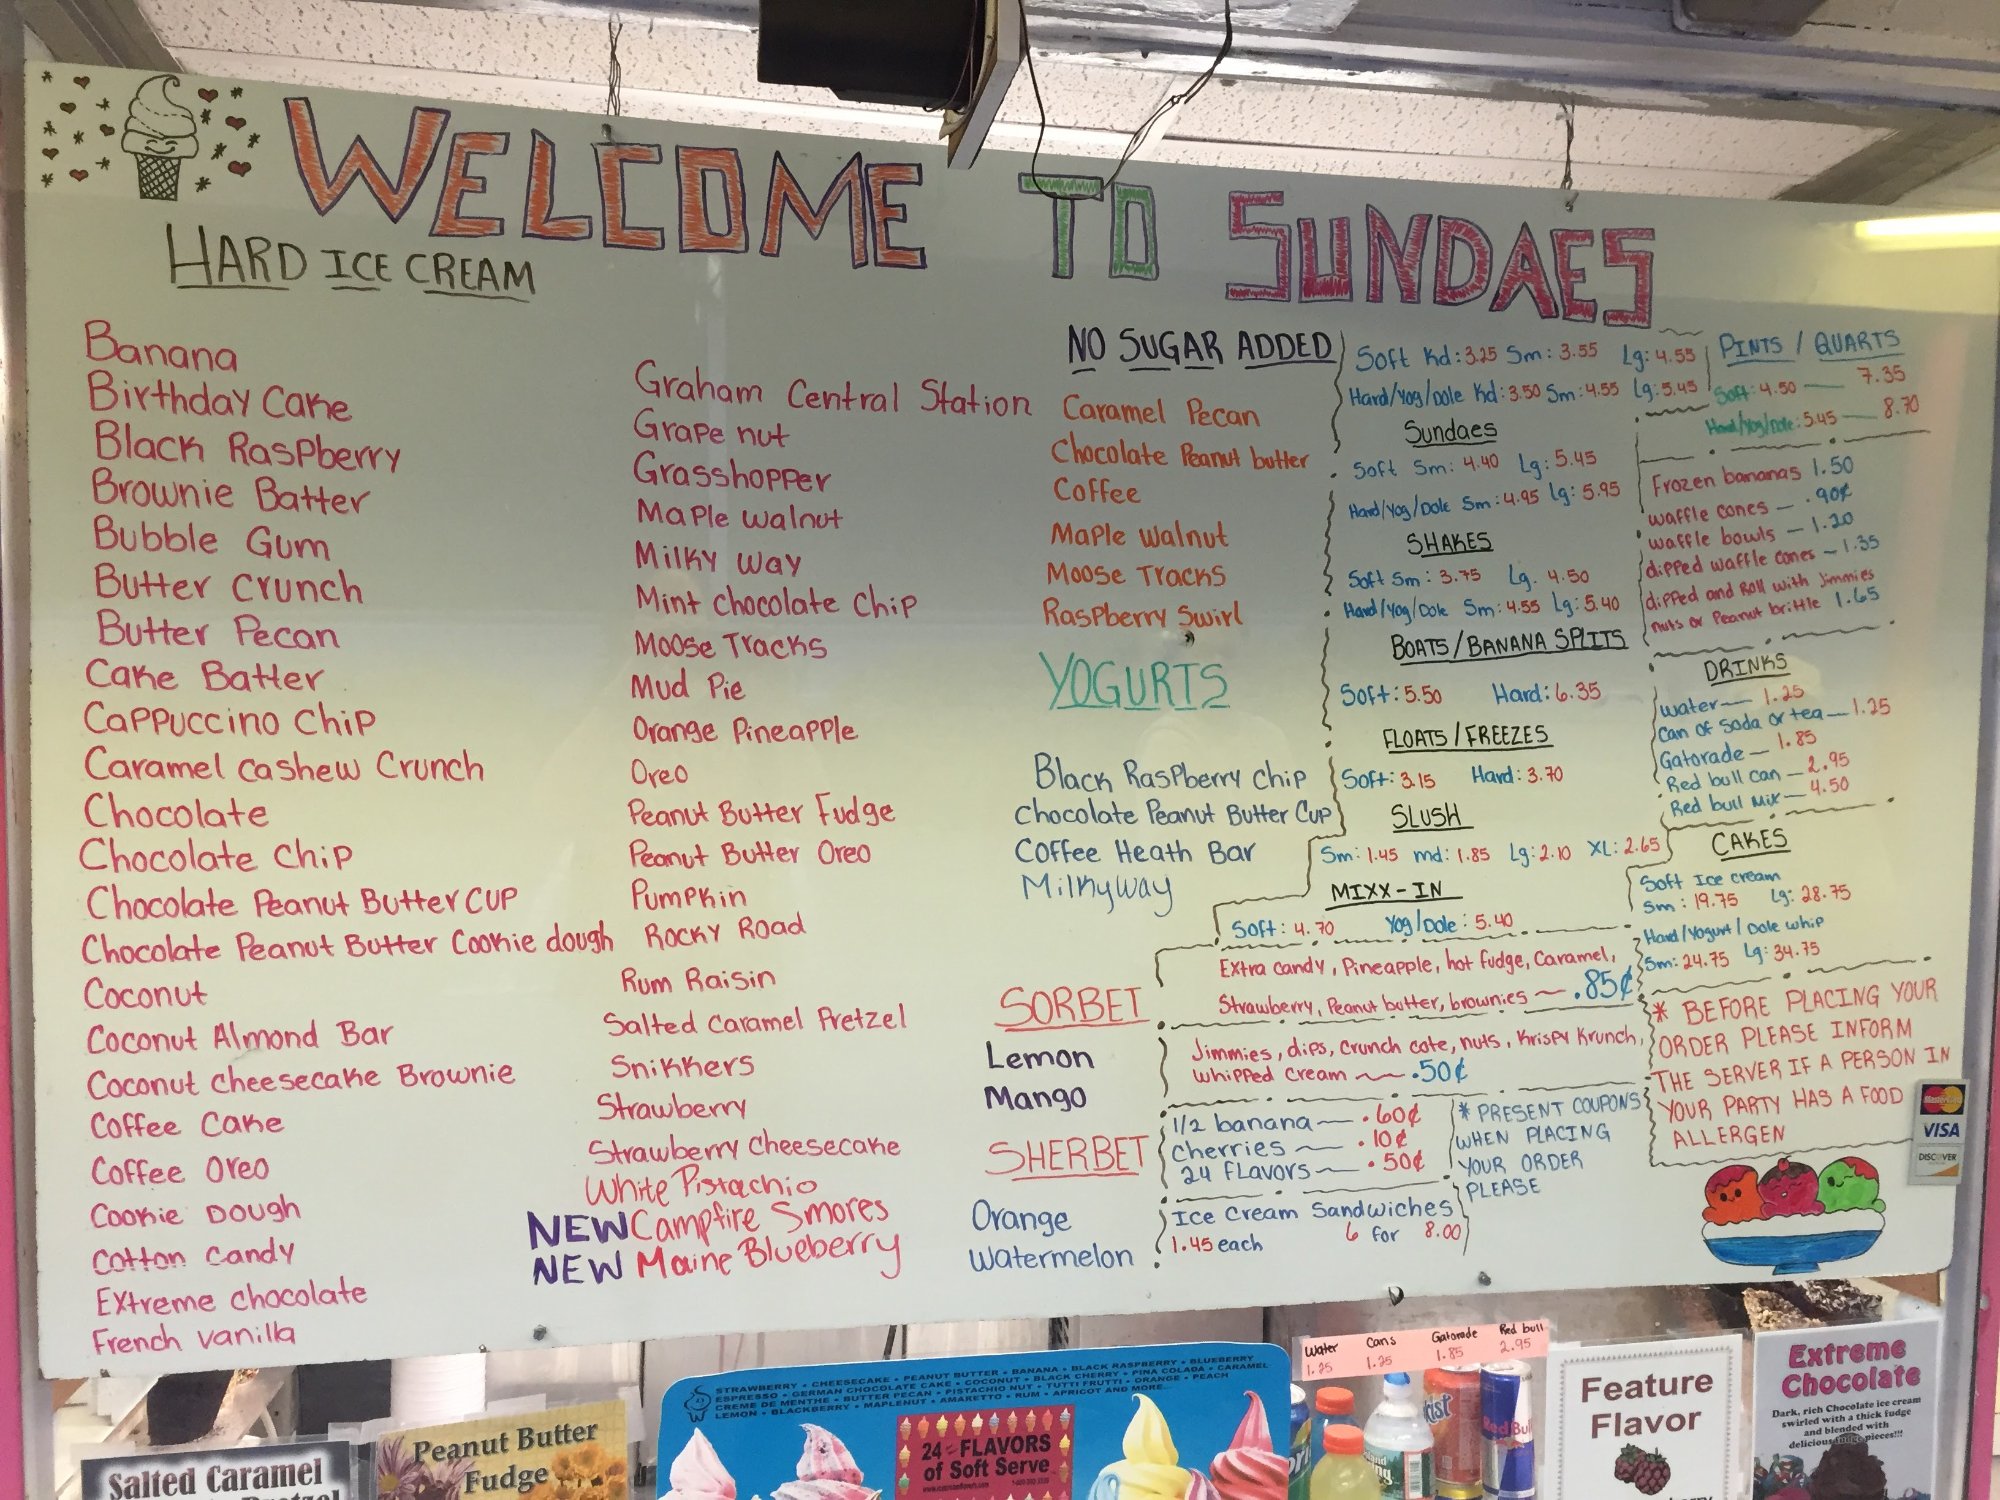 WELCOME TO SUNDAES
HARD ICE CREAM
Banana
Birthday Cake
Black Raspberry
Brownie Batter
Bubble Gum
Butter Crunch
Butter Pecan
Cake Batter
Cappuccino Chip
Caramel Cashew Crunch
Chocolate
Chocolate Chip
Chocolate Peanut Butter Cup
Chocolate Peanut Butter Cookie dough
Coconut
Coconut Almond Bar
Coconut Cheesecake Brownie
Coffee Cake
Coffee Oreo
Cookie Dough
Cotton Candy
Extreme Chocolate
French Vanilla
Graham Central Station
Grape nut
Grasshopper
Maple walnut
Milky Way
Mint Chocolate Chip
Moose Tracks
Mud Pie
Orange Pineapple
Oreo
Peanut Butter Fudge
Peanut Butter Oreo
Pumpkin
Rocky Road
Rum Raisin
Salted Caramel Pretzel
Snikkers
Strawberry
Strawberry Cheesecake
White Pistachio
NEW Campfire Smores
NEW Maine Blueberry
NO SUGAR ADDED
Caramel Pecan
Chocolate Peanut butter
Coffee
Maple walnut
Moose Tracks
Raspberry Swirl
YOGURTS
Black Raspberry Chip
Chocolate Peanut Butter Cup
Coffee Heath Bar
Milkyway
SORBET
Lemon
Mango
SHERBET
Orange
Watermelon
Soft Kd: 3.25 Sm: 3.55 Lg: 4.55
Hard/Yog/Dole Kd: 3.50 Sm: 4.55 Lg: 5.45
Sundaes
Soft Sm: 4.40 Lg: 5.45
Hard/Yog/Dole Sm: 4.95 Lg: 5.95
SHAKES
Soft Sm: 3.75 Lg. 4.50
Hard/Yog/Dole Sm: 4.55 Lg: 5.40
BOATS/BANANA SPLITS
Soft: 5.50 Hard: 6.35
FLOATS/FREEZES
Soft: 3.15 Hard: 3.70
SLUSH
Sm: 1.45 md: 1.85 Lg: 2.10 XL: 2.65
MIXX-IN
Soft: 4.70 Yog/Dole: 5.40
Extra candy, Pineapple, hot fudge, Caramel,
Strawberry, Peanut butter, brownies — .85¢
Jimmies, dips, crunch cote, nuts, Krispy Krunch,
Whipped cream — .50¢
1/2 banana — .60¢
Cherries — .10¢
24 Flavors — .50¢
Ice Cream Sandwiches
1.45 each 6 for 8.00
* PRESENT COUPONS
WHEN PLACING
YOUR ORDER
PLEASE
PINTS / QUARTS
Soft: 4.50 — 7.35
Hard/Yog/Dole: 5.45 — 8.70
Frozen bananas 1.50
waffle cones — .90¢
waffle bowls — 1.20
dipped waffle cones — 1.35
dipped and Roll with Jimmies
nuts or Peanut brittle 1.65
DRINKS
Water — 1.25
Can of Soda or tea — 1.25
Gatorade — 1.85
Red bull can — 2.95
Red bull Mix — 4.50
CAKES
Soft Ice cream
Sm: 19.75 Lg: 28.75
Hard/Yogurt/Dole whip
Sm: 24.75 Lg: 34.75
* BEFORE PLACING YOUR
ORDER PLEASE INFORM
THE SERVER IF A PERSON IN
YOUR PARTY HAS A FOOD
ALLERGEN
MasterCard
VISA
DISCOVER
Salted Caramel
Peanut Butter
Fudge
STRAWBERRY • CHEESECAKE • PEANUT BUTTER • BANANA • BLACK RASPBERRY • BLUEBERRY
ESPRESSO • GERMAN CHOCOLATE CAKE • COCONUT • BLACK CHERRY • PINA COLADA • CARAMEL
CREME DE MENTHE • BUTTER PECAN • PISTACHIO NUT • TUTTI FRUTTI • ORANGE • PEACH
LEMON • BLACKBERRY • MAPLENUT • AMARETTO • RUM • APRICOT AND MORE...
24 FLAVORS
of Soft Serve
Water Cans Gatorade Red bull
1.25 1.25 1.85 2.95
Red Bull
Feature
Flavor
Extreme
Chocolate
Dark, rich Chocolate ice cream
swirled with a thick fudge
and blended with
delicious fudge pieces!!!